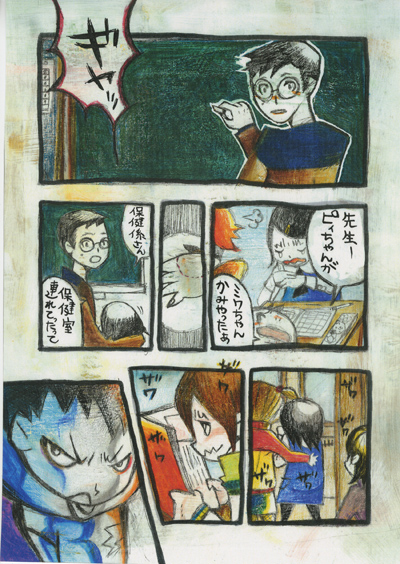 ギャーッ
先生ー
ピィちゃんが
ミワちゃん
かみやったぁ
保健係さん
保健室
連れてったって
ザワ
ザワ
ザワ
ザワ
ザワ